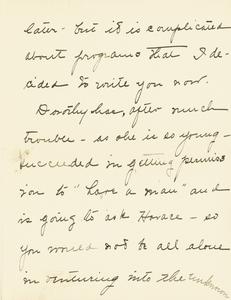 later - but it is complicated
about programs that I de-
cided to write you now.
Dorothy has, after much
trouble - as she is so young -
succeeded in getting permiss
ion to "have a man" and
is going to ask Horace - so
you would not be all alone
in venturing into the unknown